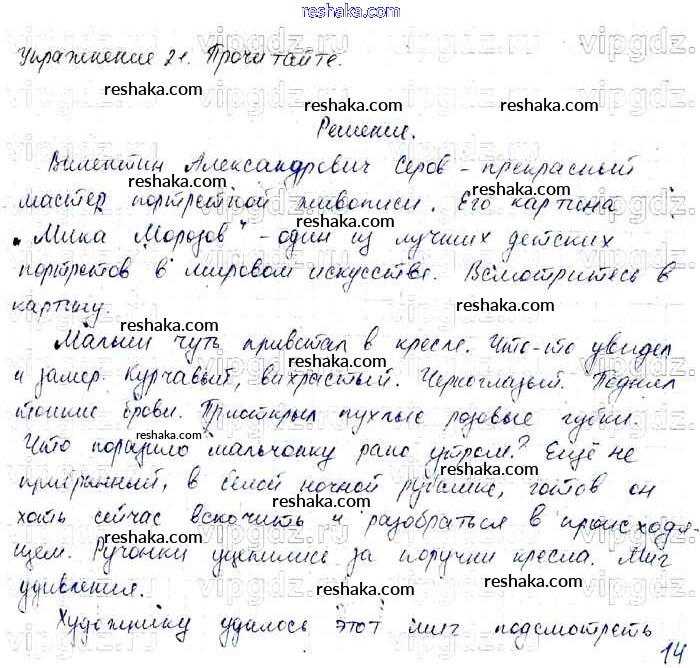 reshaka.com
Упражнение 21. Прочитайте.
Решение.
Валентин Александрович Серов – прекрасный
мастер портретной живописи. Его картина
„Мика Морозов" – один из лучших детских
портретов в мировом искусстве. Всмотритесь в
картину.
Малыш чуть привстал в кресле. Что-то увидел
и замер. Курчавый, вихрастый. Черноглазый. Поднял
тонкие брови. Приоткрыл пухлые розовые губки.
Что поразило мальчонку рано утром? Ещё не
прибранный, в белой ночной рубашке, готов он
хоть сейчас вскочить и разобраться в происходя-
щем. Ручонки уцепились за поручни кресла. Миг
удивления.
Художнику удалось этот миг подсмотреть
14